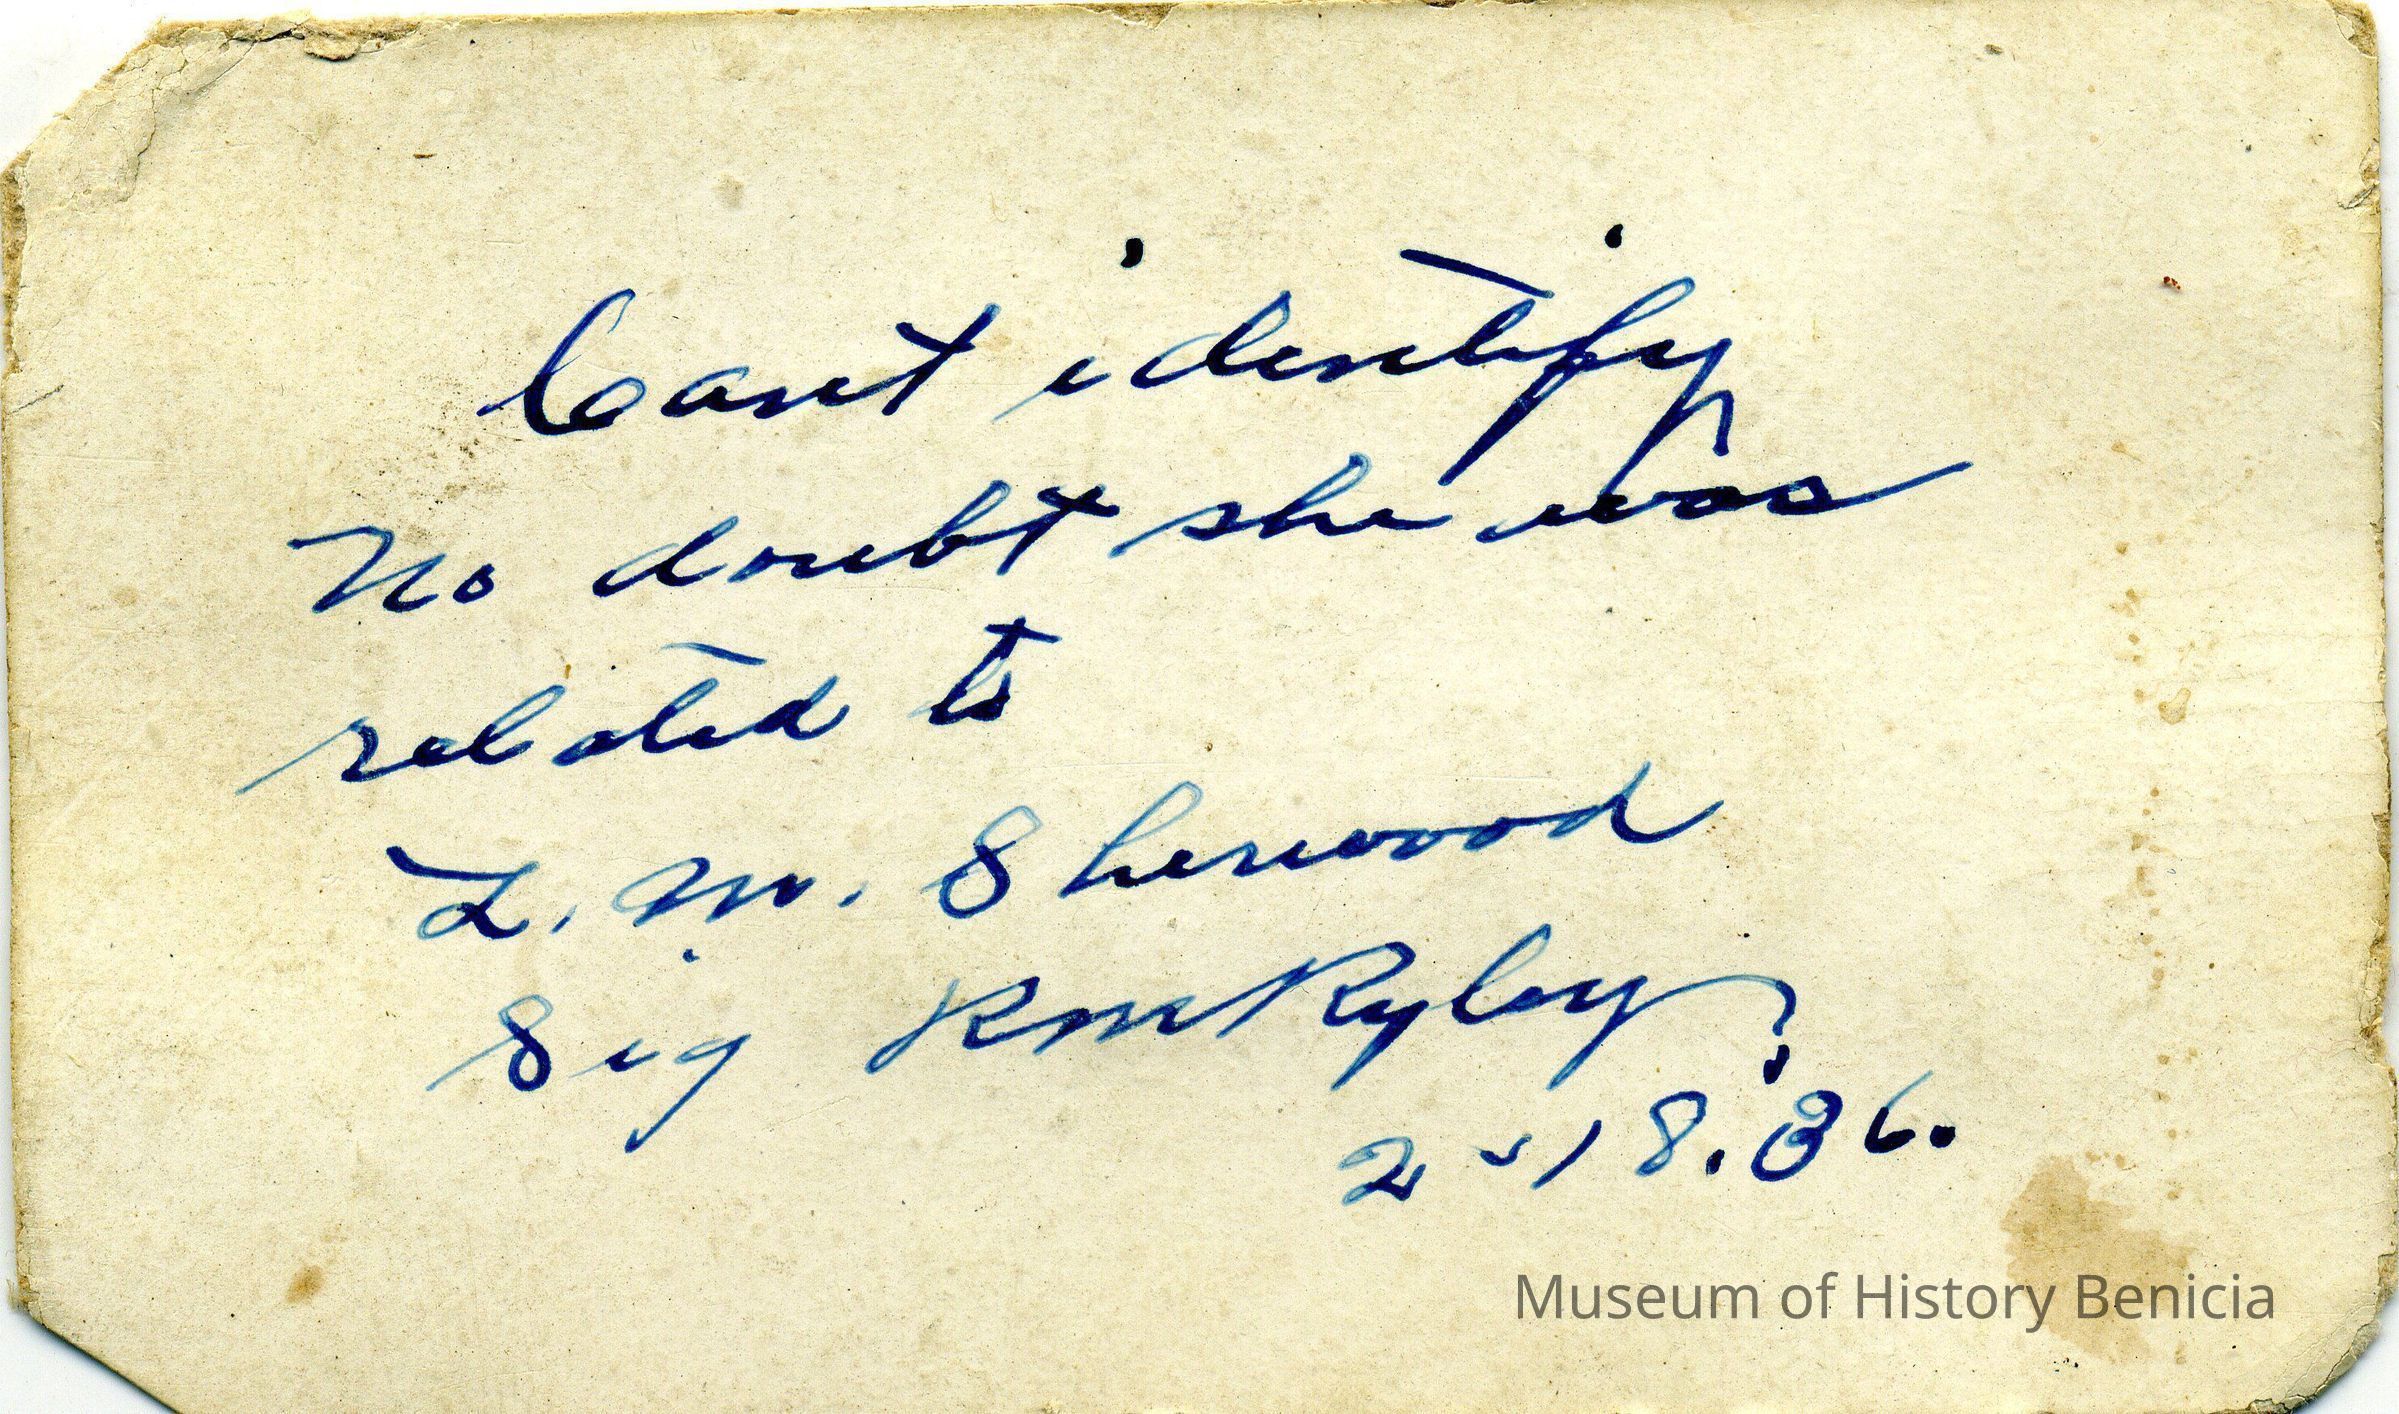 Cant identify
No doubt she was
related to
L. M. Sherwood
Sig Rm Ryley
2-18.'36.
Museum of History Benicia